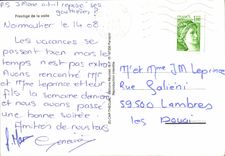 PS J Marc a fait reposé les
gouttières
Prestige de la voile
Noirmoutier le 14.08
Les vacances se
passent bien mais le
temps n'est pas extra
Avons rencontré Mr
et Mme Leprince et leur
fils la semaine dernière
et nous avons passé
une bonne soirée.
Amitiés de nous tous
Mr et Mme J.M Leprince
Rue Galiéni
59500 Lambres
les Douai